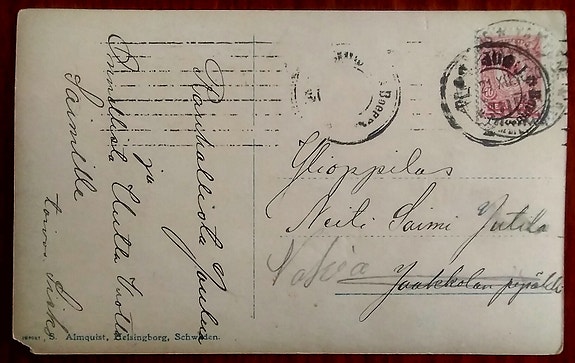 Rauhallista Joulua
ja
Onnellista Uutta Vuotta
Saimille
toivoo
Ylioppilas
Neiti Saimi Jutila
Nokia
Jaakkolan
Almquist, Helsingborg, Schweden.